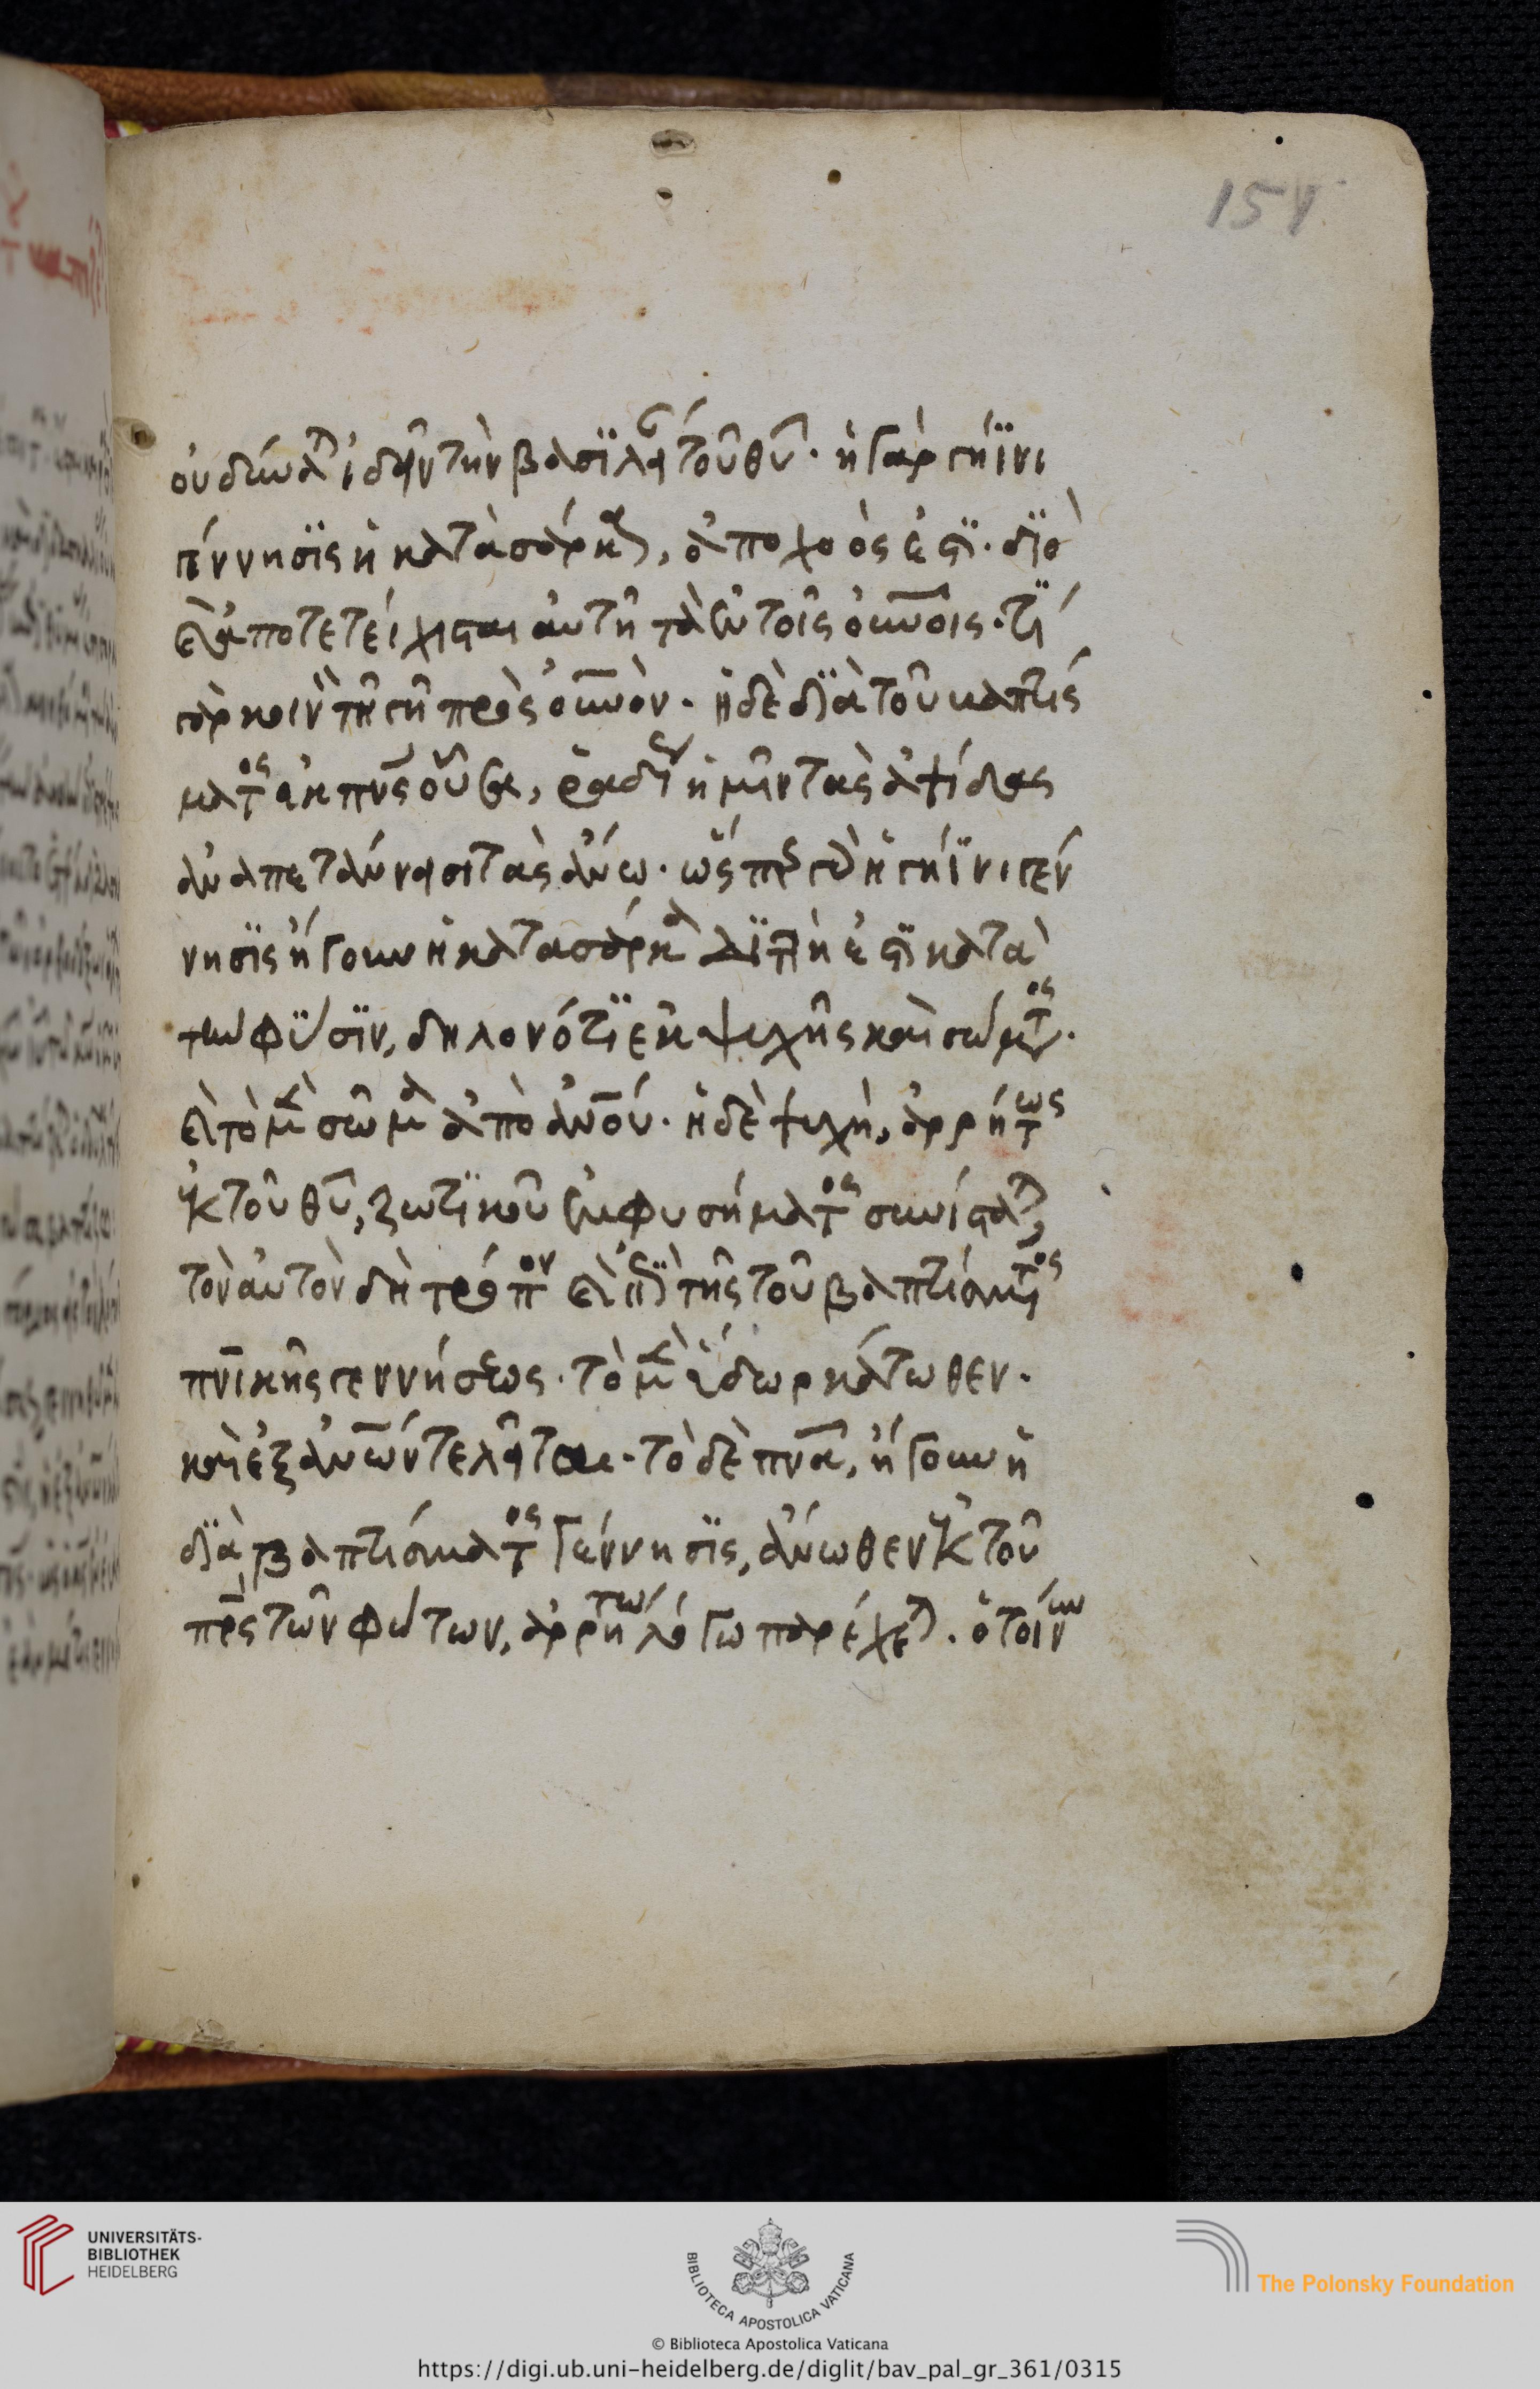 154
οὐ δύναται ἰδεῖν τὴν βασιλείαν τοῦ θυ̅· ἡ γὰρ γηΐνη
γέννησις ἡ κατὰ σάρκα, ἀπὸ χοὸς ἐστὶ· διὸ
καὶ ἀποτετείχισται αὐτῇ τὰ ἐν τοῖς οὐνοῖς· τί
γὰρ κοινὸν τῆ γῆ πρὸς οὐνὸν· ἡ δὲ διὰ τοῦ βαπτίσ
ματος ἐκ πνς οὖσα, ἡμῖν τὰς ἀψίδας
ἀναπεταννύει τὰς ἄνω· ὥσπερ γὰρ ἡ γηΐνη γέν
νησις ἤγουν ἡ κατὰ σάρκα διπλῆ ἐστὶ κατὰ
τὴν φύσιν, δηλονότι ἐκ ψυχῆς καὶ σώματος·
καὶ τὸ μὲν σῶμα ἀπὸ ἀνου· ἡ δὲ ψυχὴ, ἀρρήτως
ἐκ τοῦ θυ, ζωτικοῦ ἐμφυσήματος συνίσταται,
τὸν αὐτὸν δὴ τρόπον καὶ ἐπὶ τῆς τοῦ βαπτίσματος
πνικῆς γεννήσεως· τὸ μὲν ὕδωρ κάτωθεν·
καὶ ἐξ ἀνων τελεῖται· τὸ δὲ πνα, ἤγουν ἡ
διὰ βαπτίσματος γέννησις, ἄνωθεν ἐκ τοῦ
πρς τῶν φώτων, ἀρρήτω λόγω παρέχεται. ὁ τοίνυν
UNIVERSITÄTS-
BIBLIOTHEK
HEIDELBERG
BIBLIOTECA APOSTOLICA VATICANA
The Polonsky Foundation
© Biblioteca Apostolica Vaticana
https://digi.ub.uni-heidelberg.de/diglit/bav_pal_gr_361/0315